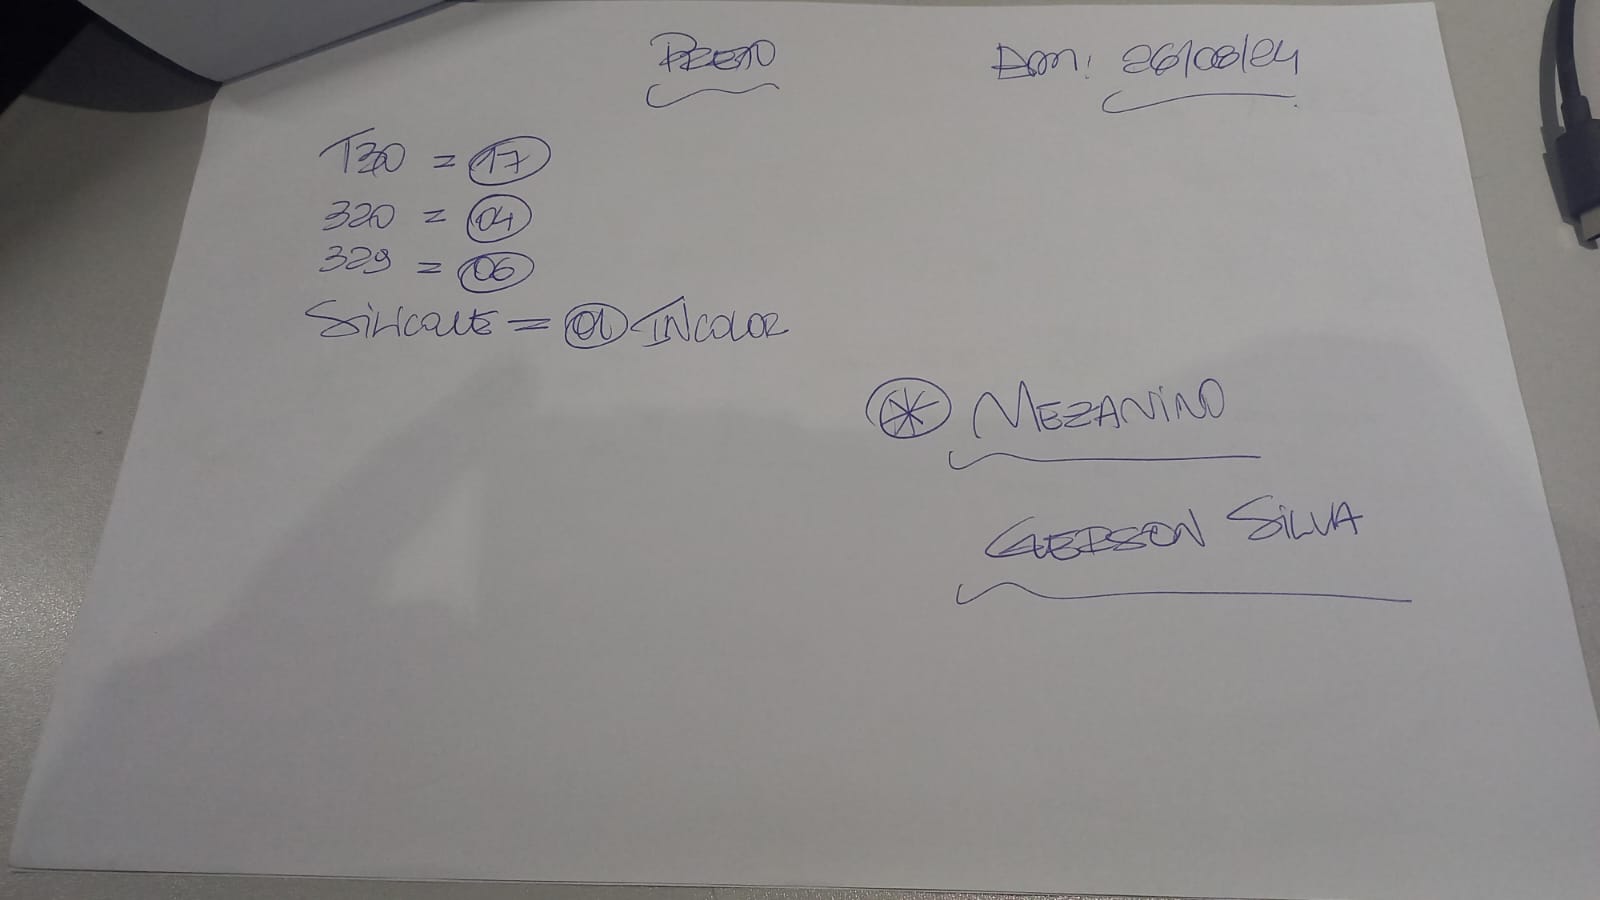 PRETO
Dom: 26/08/24
T30 = 17
320 = 04
329 = 06
SiLicONE = 01 INCOLOR
* MEZANiNO
GERSON SiLVA